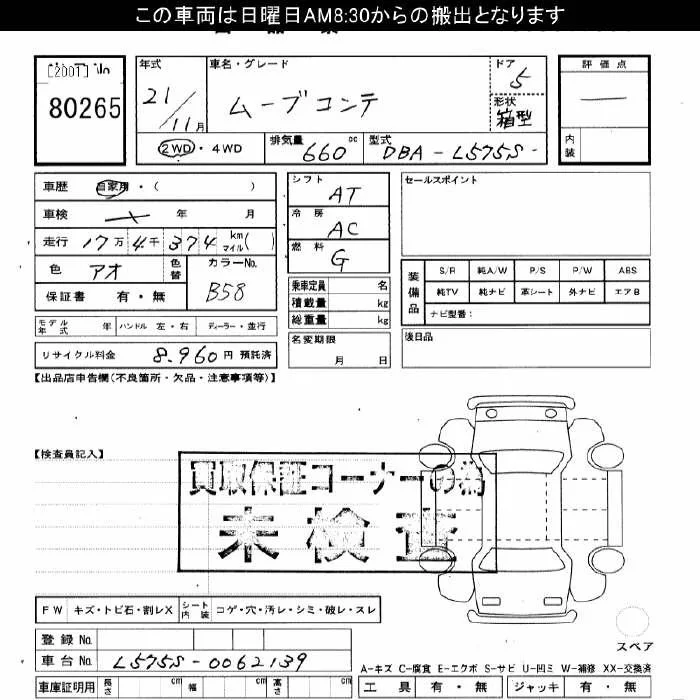 この車両は日曜日AM8:30からの搬出となります
出品票
80265
年式
21/11月
車名・グレード
ムーブコンテ
ドア
5
形状
箱型
2WD・4WD
排気量
660cc
型式
DBA-L575S-
評価点
内装
車歴 自家用・( )
車検 年 月
走行 17万4千374 km マイル( )
色 アオ 色替
カラーNo.
B58
保証書 有・無
モデル年式 年 ハンドル 左・右 ディーラー・並行
リサイクル料金 8,960円 預託済
シフト
AT
冷房
AC
燃料
G
乗車定員 名
積載量 kg
総重量 kg
名変期限
月 日
セールスポイント
装備品
S/R 純A/W P/S P/W ABS
純TV 純ナビ 革シート 外ナビ エアB
ナビ型番:
後日品
【出品店申告欄(不良箇所・欠品・注意事項等)】
【検査員記入】
買取保証コーナーの為
未検査
FW キズ・トビ石・割レX シート内装 コゲ・穴・汚レ・シミ・破レ・スレ
登録No.
車台No. L575S-0062139
車庫証明用 長さ cm 幅 cm 高さ cm
スペア
A-キズ C-腐食 E-エクボ S-サビ U-凹ミ W-補修 XX-交換済
工具 有・無 ジャッキ 有・無